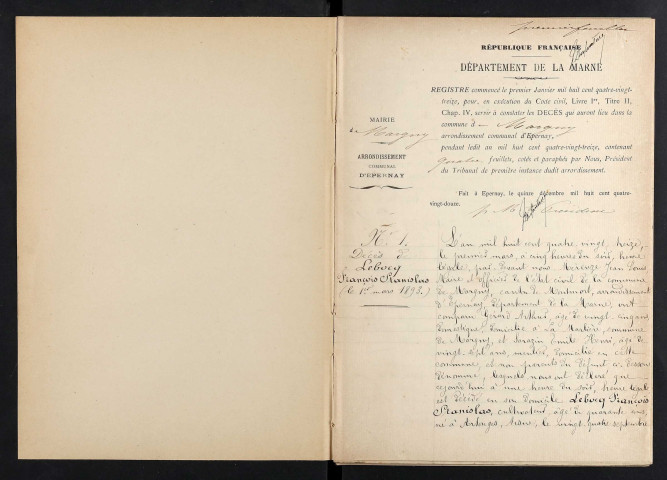 premier feuillet
RÉPUBLIQUE FRANÇAISE
DÉPARTEMENT DE LA MARNE
REGISTRE commencé le premier Janvier mil huit cent quatre-vingt-
treize, pour, en exécution du Code civil, Livre Ier, Titre II,
Chap. IV, servir à constater les DÉCÈS qui auront lieu dans la
commune d e Margny
arrondissement communal d'Epernay,
pendant ledit an mil huit cent quatre-vingt-treize, contenant
quatre feuillets, cotés et paraphés par Nous, Président
du Tribunal de première instance dudit arrondissement.
Fait à Epernay, le quinze décembre mil huit cent quatre-
vingt-douze.
MAIRIE
de Margny
ARRONDISSEMENT
COMMUNAL
D'EPERNAY
No 1.
Décès de
Lebocq
François Stanislas
(le 1er mars 1893.)
L'an mil huit cent quatre vingt treize,
le premier mars, à cinq heures du soir, heure
légale, par devant nous Jean Louis
Maire et officier de l'état civil de la commune
de Margny, canton de Montmort, arrondissement
d'Epernay, département de la Marne, ont
comparu Gérard Arthur, âgé de vingt cinq ans,
domestique, domicilié à La commune
de Margny, et Sarazin Emile Henri, âgé de
vingt sept ans, domicilié en cette
commune, et non parents du défunt ci-dessous
dénommé, lesquels nous ont déclaré que
cejourd'hui à une heure du soir, heure légale
est décédé en son domicile Lebocq François
Stanislas, cultivateur, âgé de quarante ans,
né à Artonges, Aisne, le vingt quatre septembre